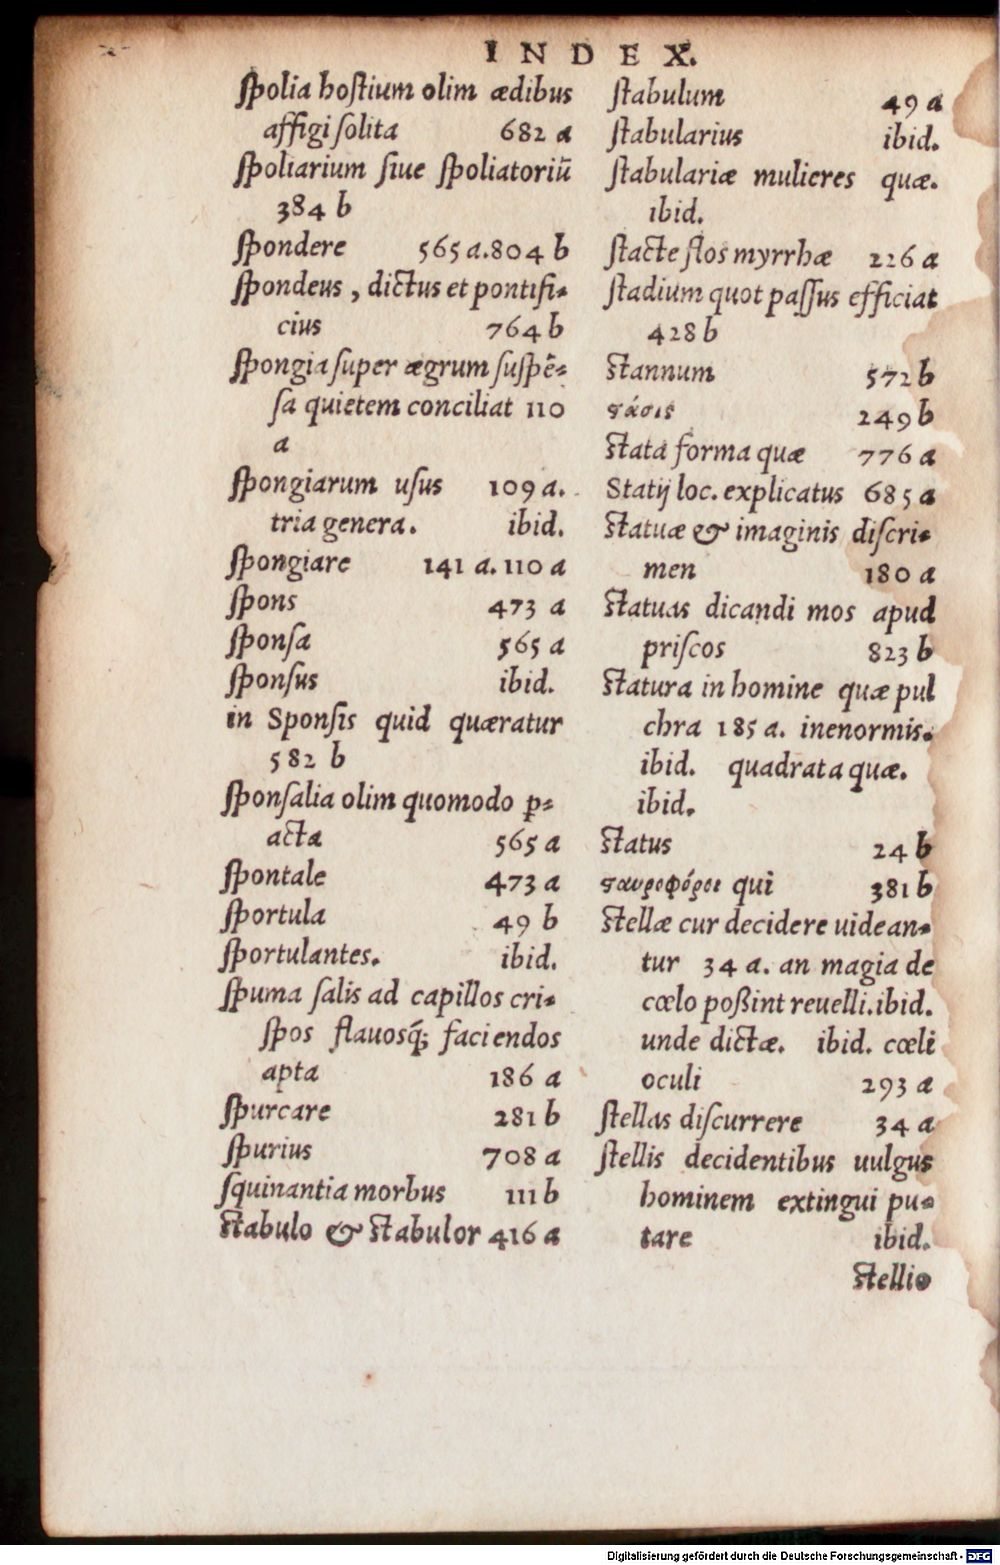 INDEX.
ſpolia hoſtium olim ædibus
affigi ſolita 682 a
ſpoliarium ſiue ſpoliatoriū
384 b
ſpondere 565 a. 804 b
ſpondeus, dictus et pontifi-
cius 764 b
ſpongia ſuper ægrum ſuſpē-
ſa quietem conciliat 110
a
ſpongiarum uſus 109 a.
tria genera. ibid.
ſpongiare 141 a. 110 a
ſpons 473 a
ſponſa 565 a
ſponſus ibid.
in Sponſis quid quæratur
582 b
ſponſalia olim quomodo ꝑ-
acta 565 a
ſpontale 473 a
ſportula 49 b
ſportulantes. ibid.
ſpuma ſalis ad capillos cri-
ſpos flauosq́; faciendos
apta 186 a
ſpurcare 281 b
ſpurius 708 a
ſquinantia morbus 111 b
Stabulo & Stabulor 416 a
ſtabulum 49 a
ſtabularius ibid.
ſtabulariæ mulieres quæ.
ibid.
ſtacte flos myrrhæ 226 a
ſtadium quot paſſus efficiat
428 b
Stannum 572 b
ϛάσις 249 b
Stata forma quæ 776 a
Statij loc. explicatus 685 a
Statuæ & imaginis diſcri-
men 180 a
Statuas dicandi mos apud
priſcos 823 b
Statura in homine quæ pul
chra 185 a. inenormis.
ibid. quadrata quæ.
ibid.
Status 24 b
ϛαυροφόροι qui 381 b
Stellæ cur decidere uidean-
tur 34 a. an magia de
cœlo poßint reuelli. ibid.
unde dictæ. ibid. cœli
oculi 293 a
ſtellas diſcurrere 34 a
ſtellis decidentibus uulgus
hominem extingui pu-
tare ibid.
Stellio
Digitalisierung gefördert durch die Deutsche Forschungsgemeinschaft - DFG